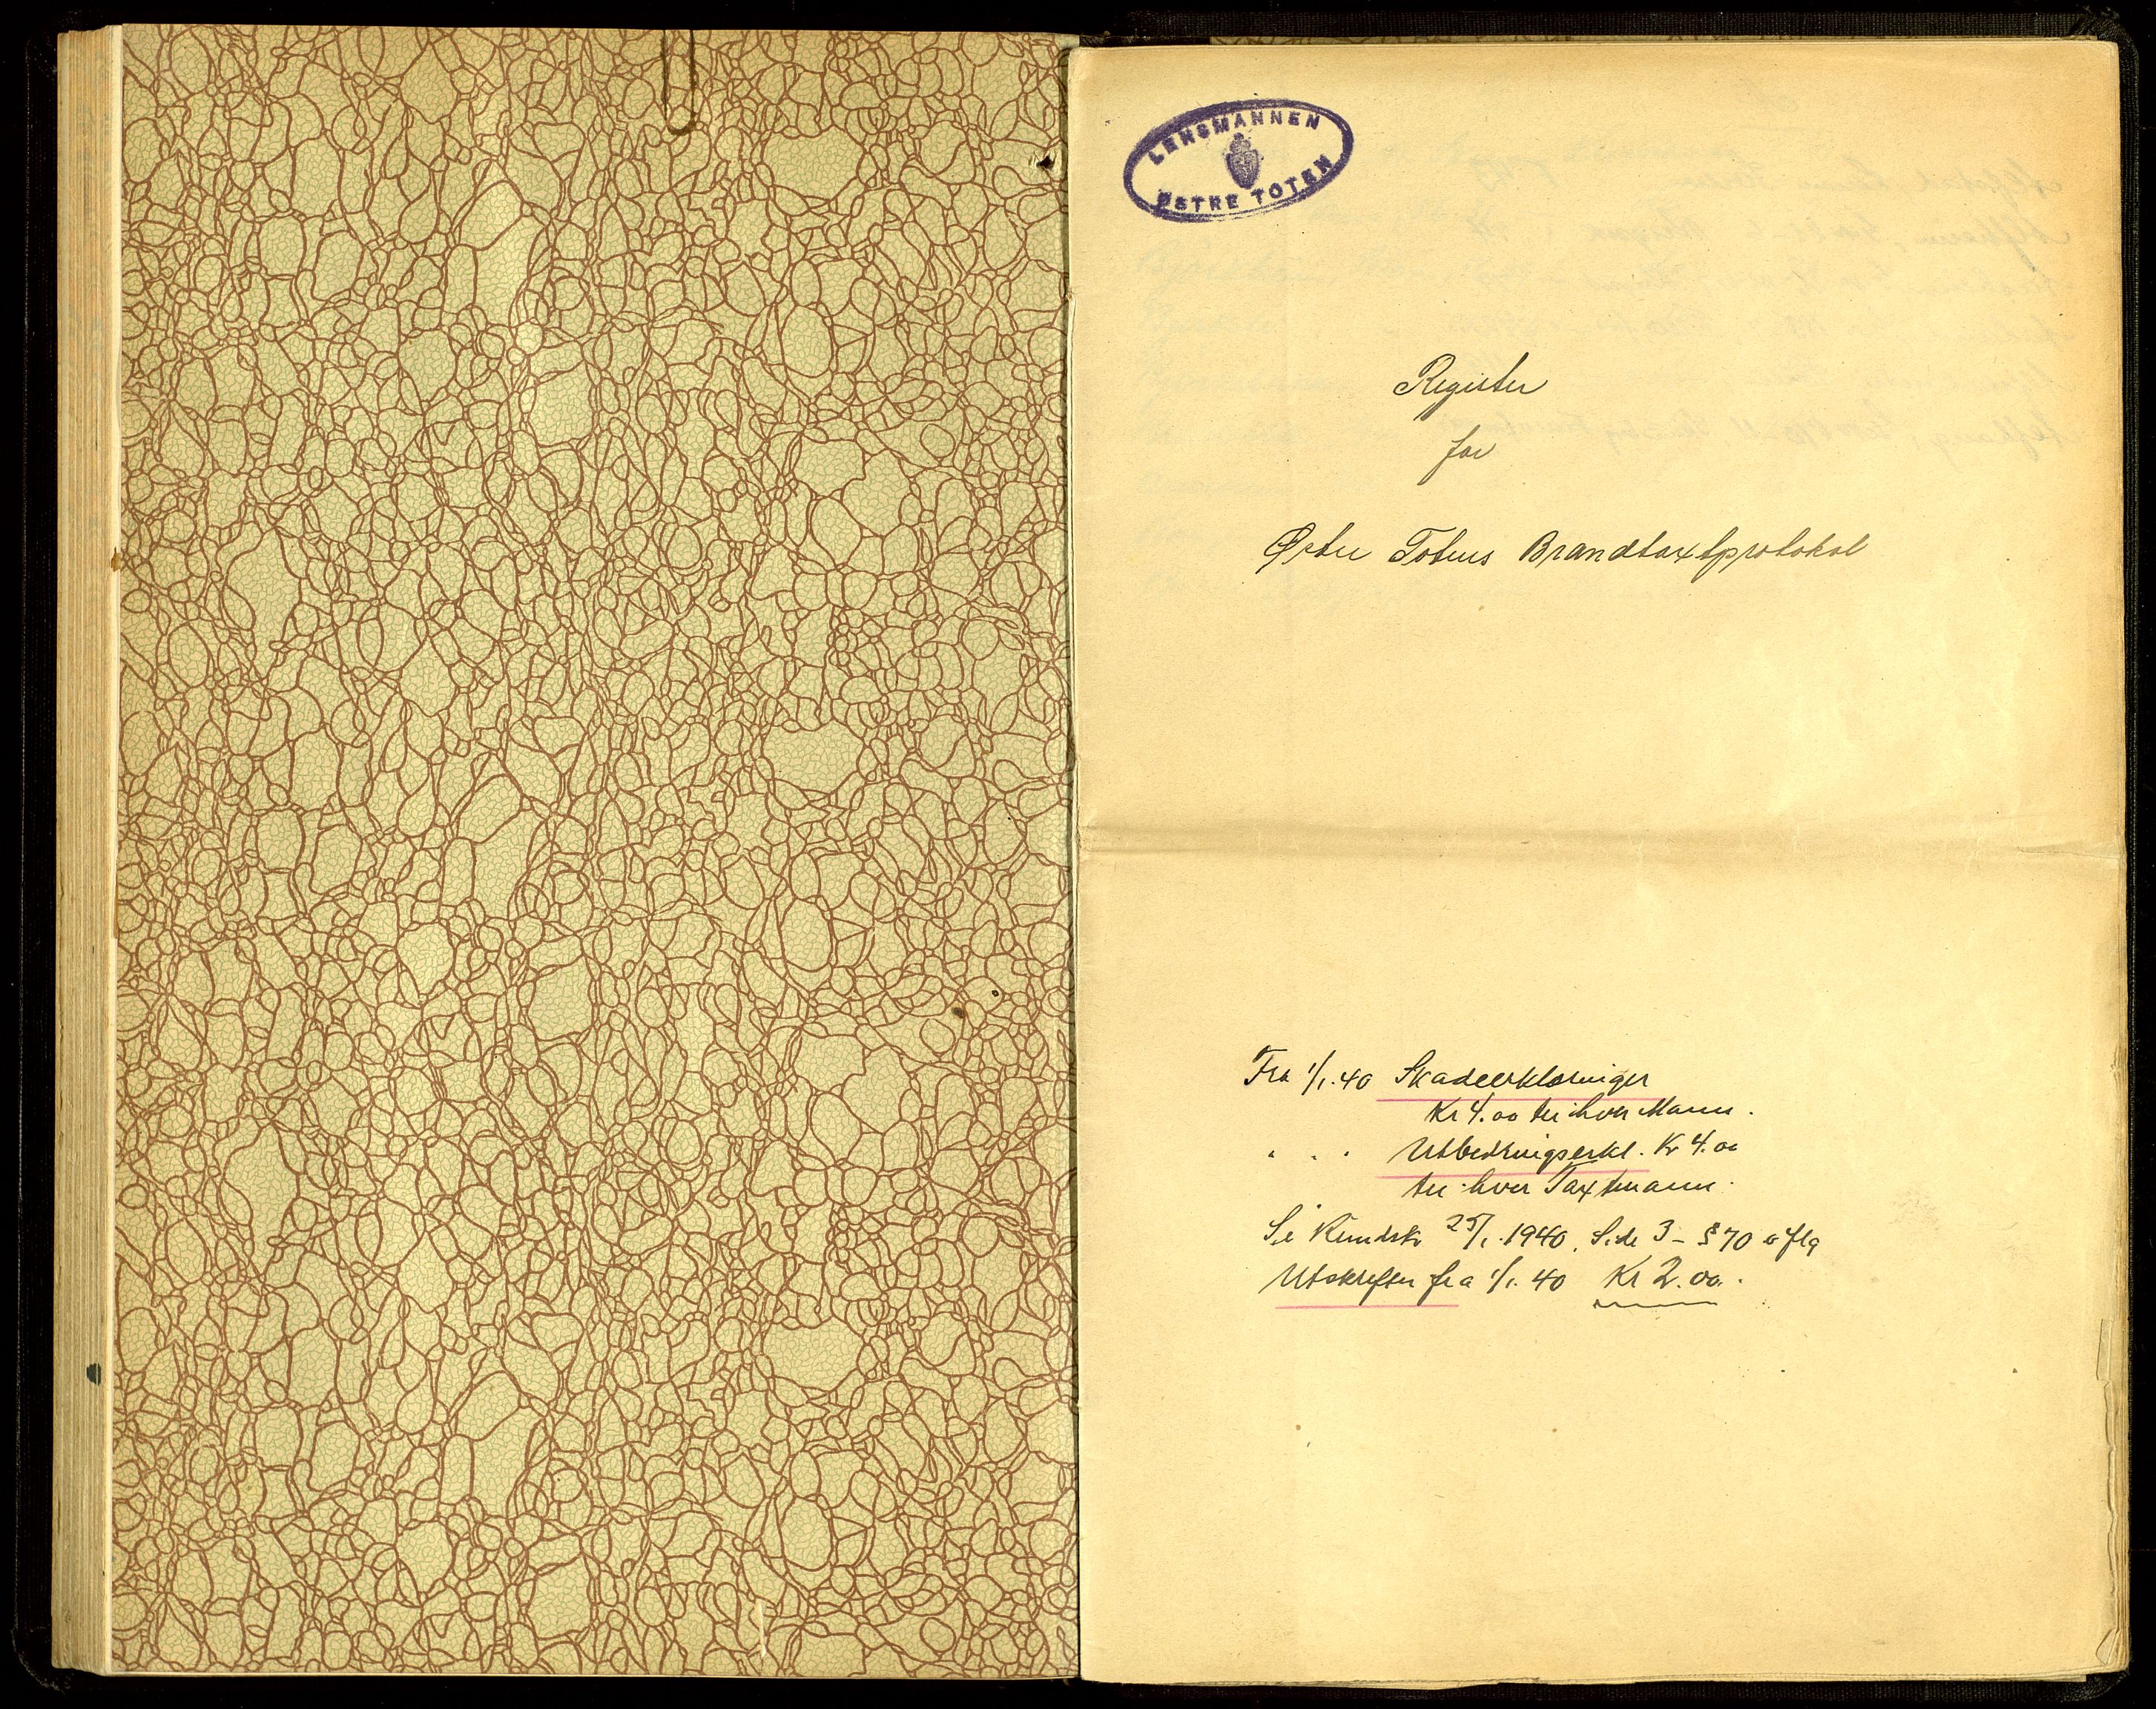 LENSMANNEN
ØSTRE TOTEN
Register
for
Østre Totens Brandtaxtprotokol
Fra 1/1.40 Skadeerklæringer
Kr 4.00 til hver Mann.
" " " Utbedringserkl. Kr 4.00
til hver Taxtmann.
Se Rundskr 25/1.1940. Side 3 - § 70 o flg
Utskrifter fra 1/1.40 Kr 2.00.